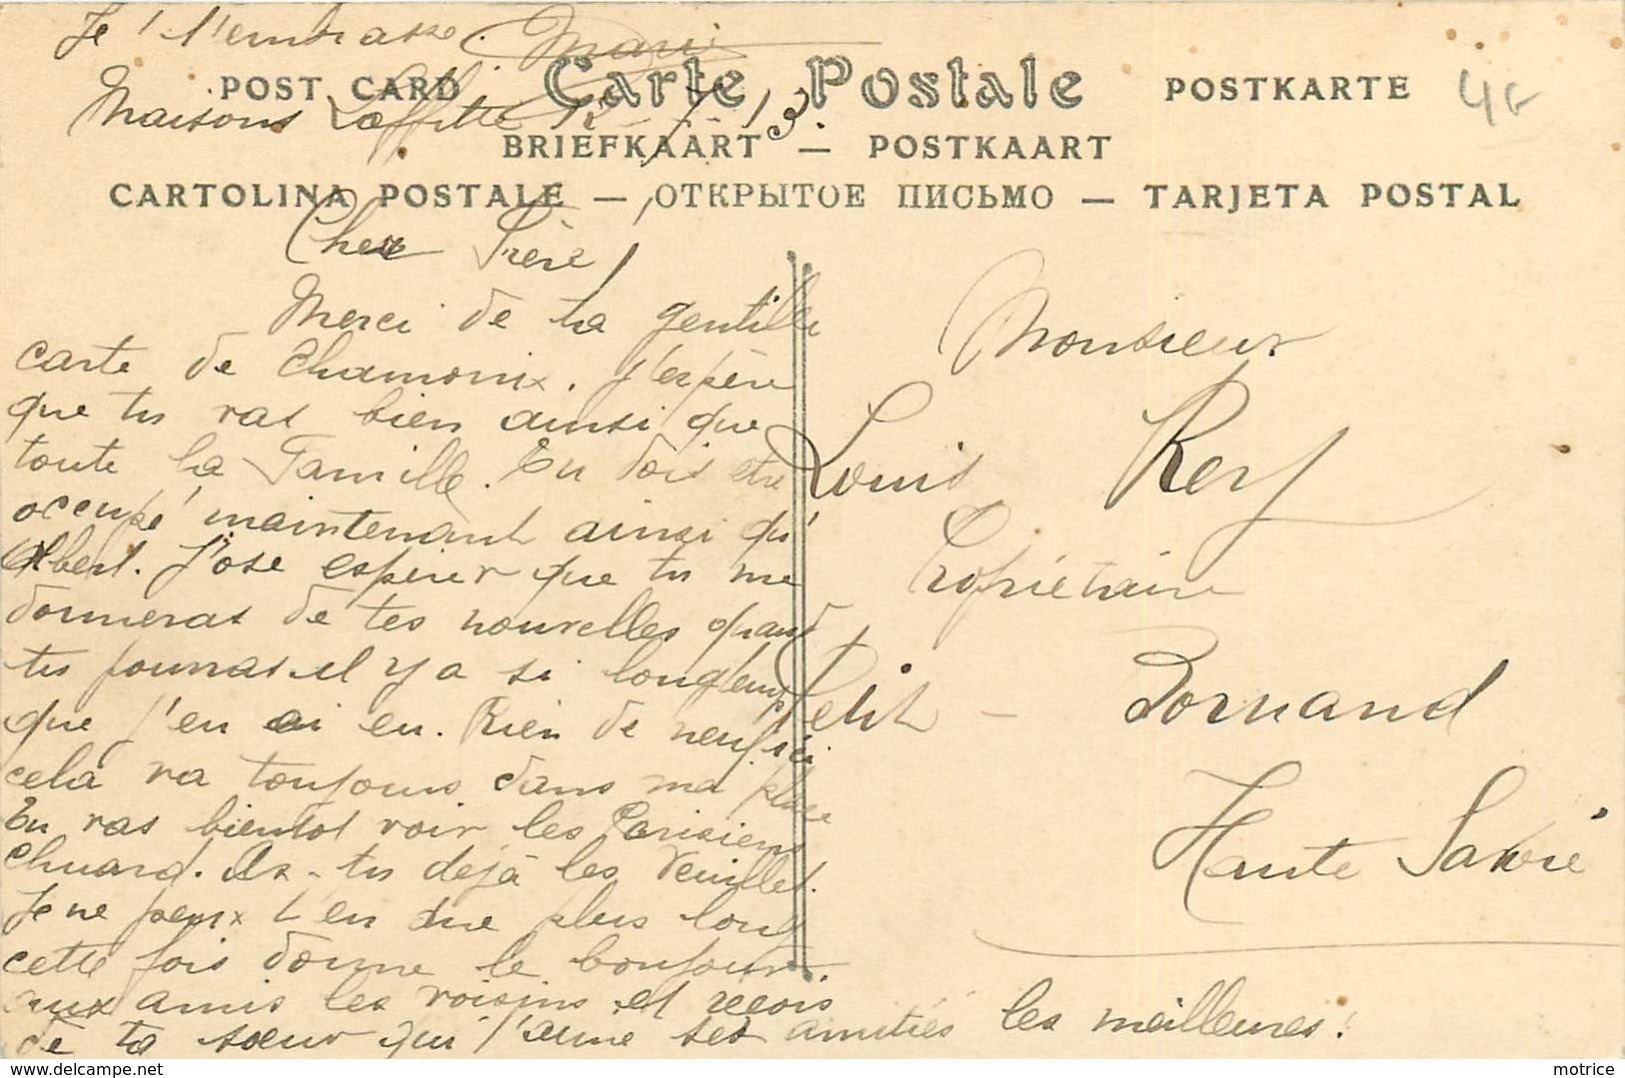 Je t'embrasse. Marie
POST CARD Carte Postale POSTKARTE
4G
Maisons Laffitte 12-7-13.
BRIEFKAART — POSTKAART
CARTOLINA POSTALE — ОТКРЫТОЕ ПИСЬМО — TARJETA POSTAL
Cher Frère,
Merci de ta gentille
carte de Chamonix. J'espère
que tu vas bien ainsi que
toute la Famille. Tu dois etre
occupé maintenant ainsi qu'
Albert. J'ose espérer que tu me
donneras de tes nouvelles quand
tu pourras il y a si longtemps
que j'en ai eu. Rien de neuf ici
cela va toujours dans ma place
Tu vas bientot voir les Parisiens
Chuard. As-tu dejà les Veuillet.
Je ne peux t'en dire plus long
cette fois donne le bonjour
aux amis les voisins et reçois
de ta sœur qui t'aime ses amitiés les meilleures.
Monsieur
Louis Rey
Propriétaire
Petit-Bornand
Haute Savoie
motrice